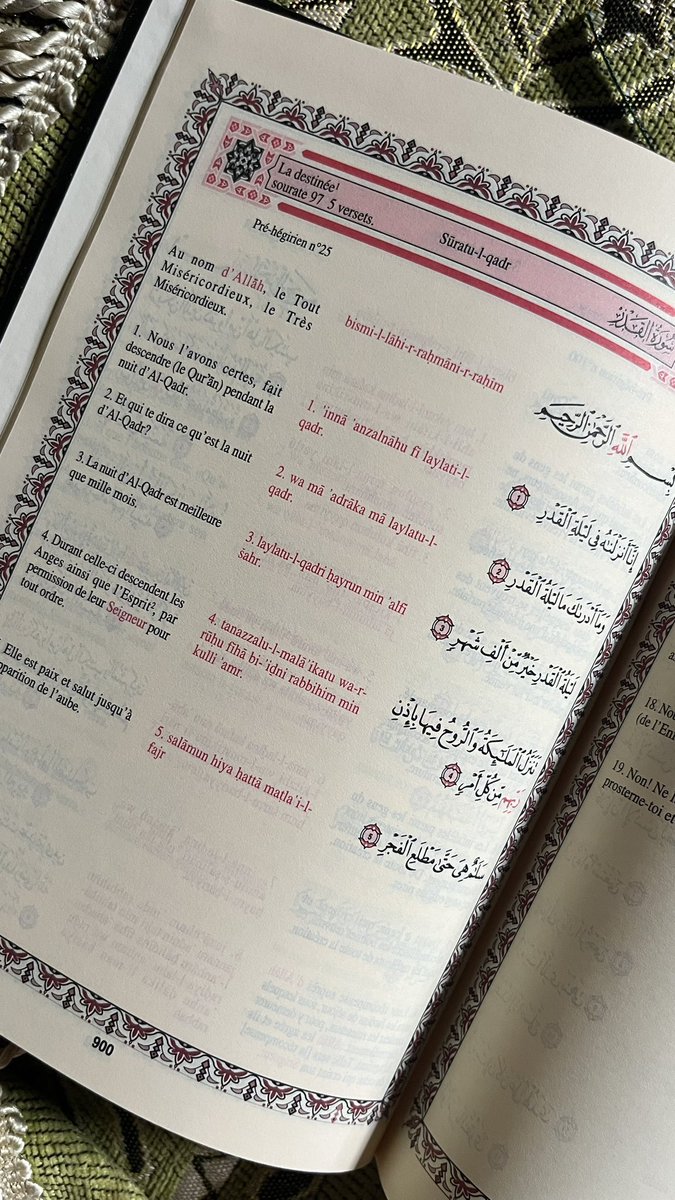 La destinée¹
sourate 97 5 versets.
Sūratu-l-qadr
سُورَةُ القَدْرِ
Pré-hégirien n°25
Au nom d'Allāh, le Tout
Miséricordieux, le Très
Miséricordieux.
1. Nous l'avons certes, fait
descendre (le Qur'ān) pendant la
nuit d'Al-Qadr.
2. Et qui te dira ce qu'est la nuit
d'Al-Qadr?
3. La nuit d'Al-Qadr est meilleure
que mille mois.
4. Durant celle-ci descendent les
Anges ainsi que l'Esprit², par
permission de leur Seigneur pour
tout ordre.
Elle est paix et salut jusqu'à
apparition de l'aube.
bismi-l-lāhi-r-rahmāni-r-rahim
1. 'innā 'anzalnāhu fī laylati-l-
qadr.
2. wa mā 'adrāka mā laylatu-l-
qadr.
3. laylatu-l-qadri ḥayrun min 'alfi
šahr.
4. tanazzalu-l-malā'ikatu wa-r-
rūḥu fīhā bi-'iḏni rabbihim min
kulli 'amr.
5. salāmun hiya ḥattā matla'i-l-
fajr
بِسْمِ ٱللَّهِ ٱلرَّحْمَٰنِ ٱلرَّحِيمِ
إِنَّآ أَنزَلْنَٰهُ فِى لَيْلَةِ ٱلْقَدْرِ 1
وَمَآ أَدْرَىٰكَ مَا لَيْلَةُ ٱلْقَدْرِ 2
لَيْلَةُ ٱلْقَدْرِ خَيْرٌ مِّنْ أَلْفِ شَهْرٍ 3
تَنَزَّلُ ٱلْمَلَٰٓئِكَةُ وَٱلرُّوحُ فِيهَا بِإِذْنِ
رَبِّهِم مِّن كُلِّ أَمْرٍ 4
سَلَٰمٌ هِىَ حَتَّىٰ مَطْلَعِ ٱلْفَجْرِ 5
900
18. Nou
(de l'En
19. Non! Ne
prosterne-toi et